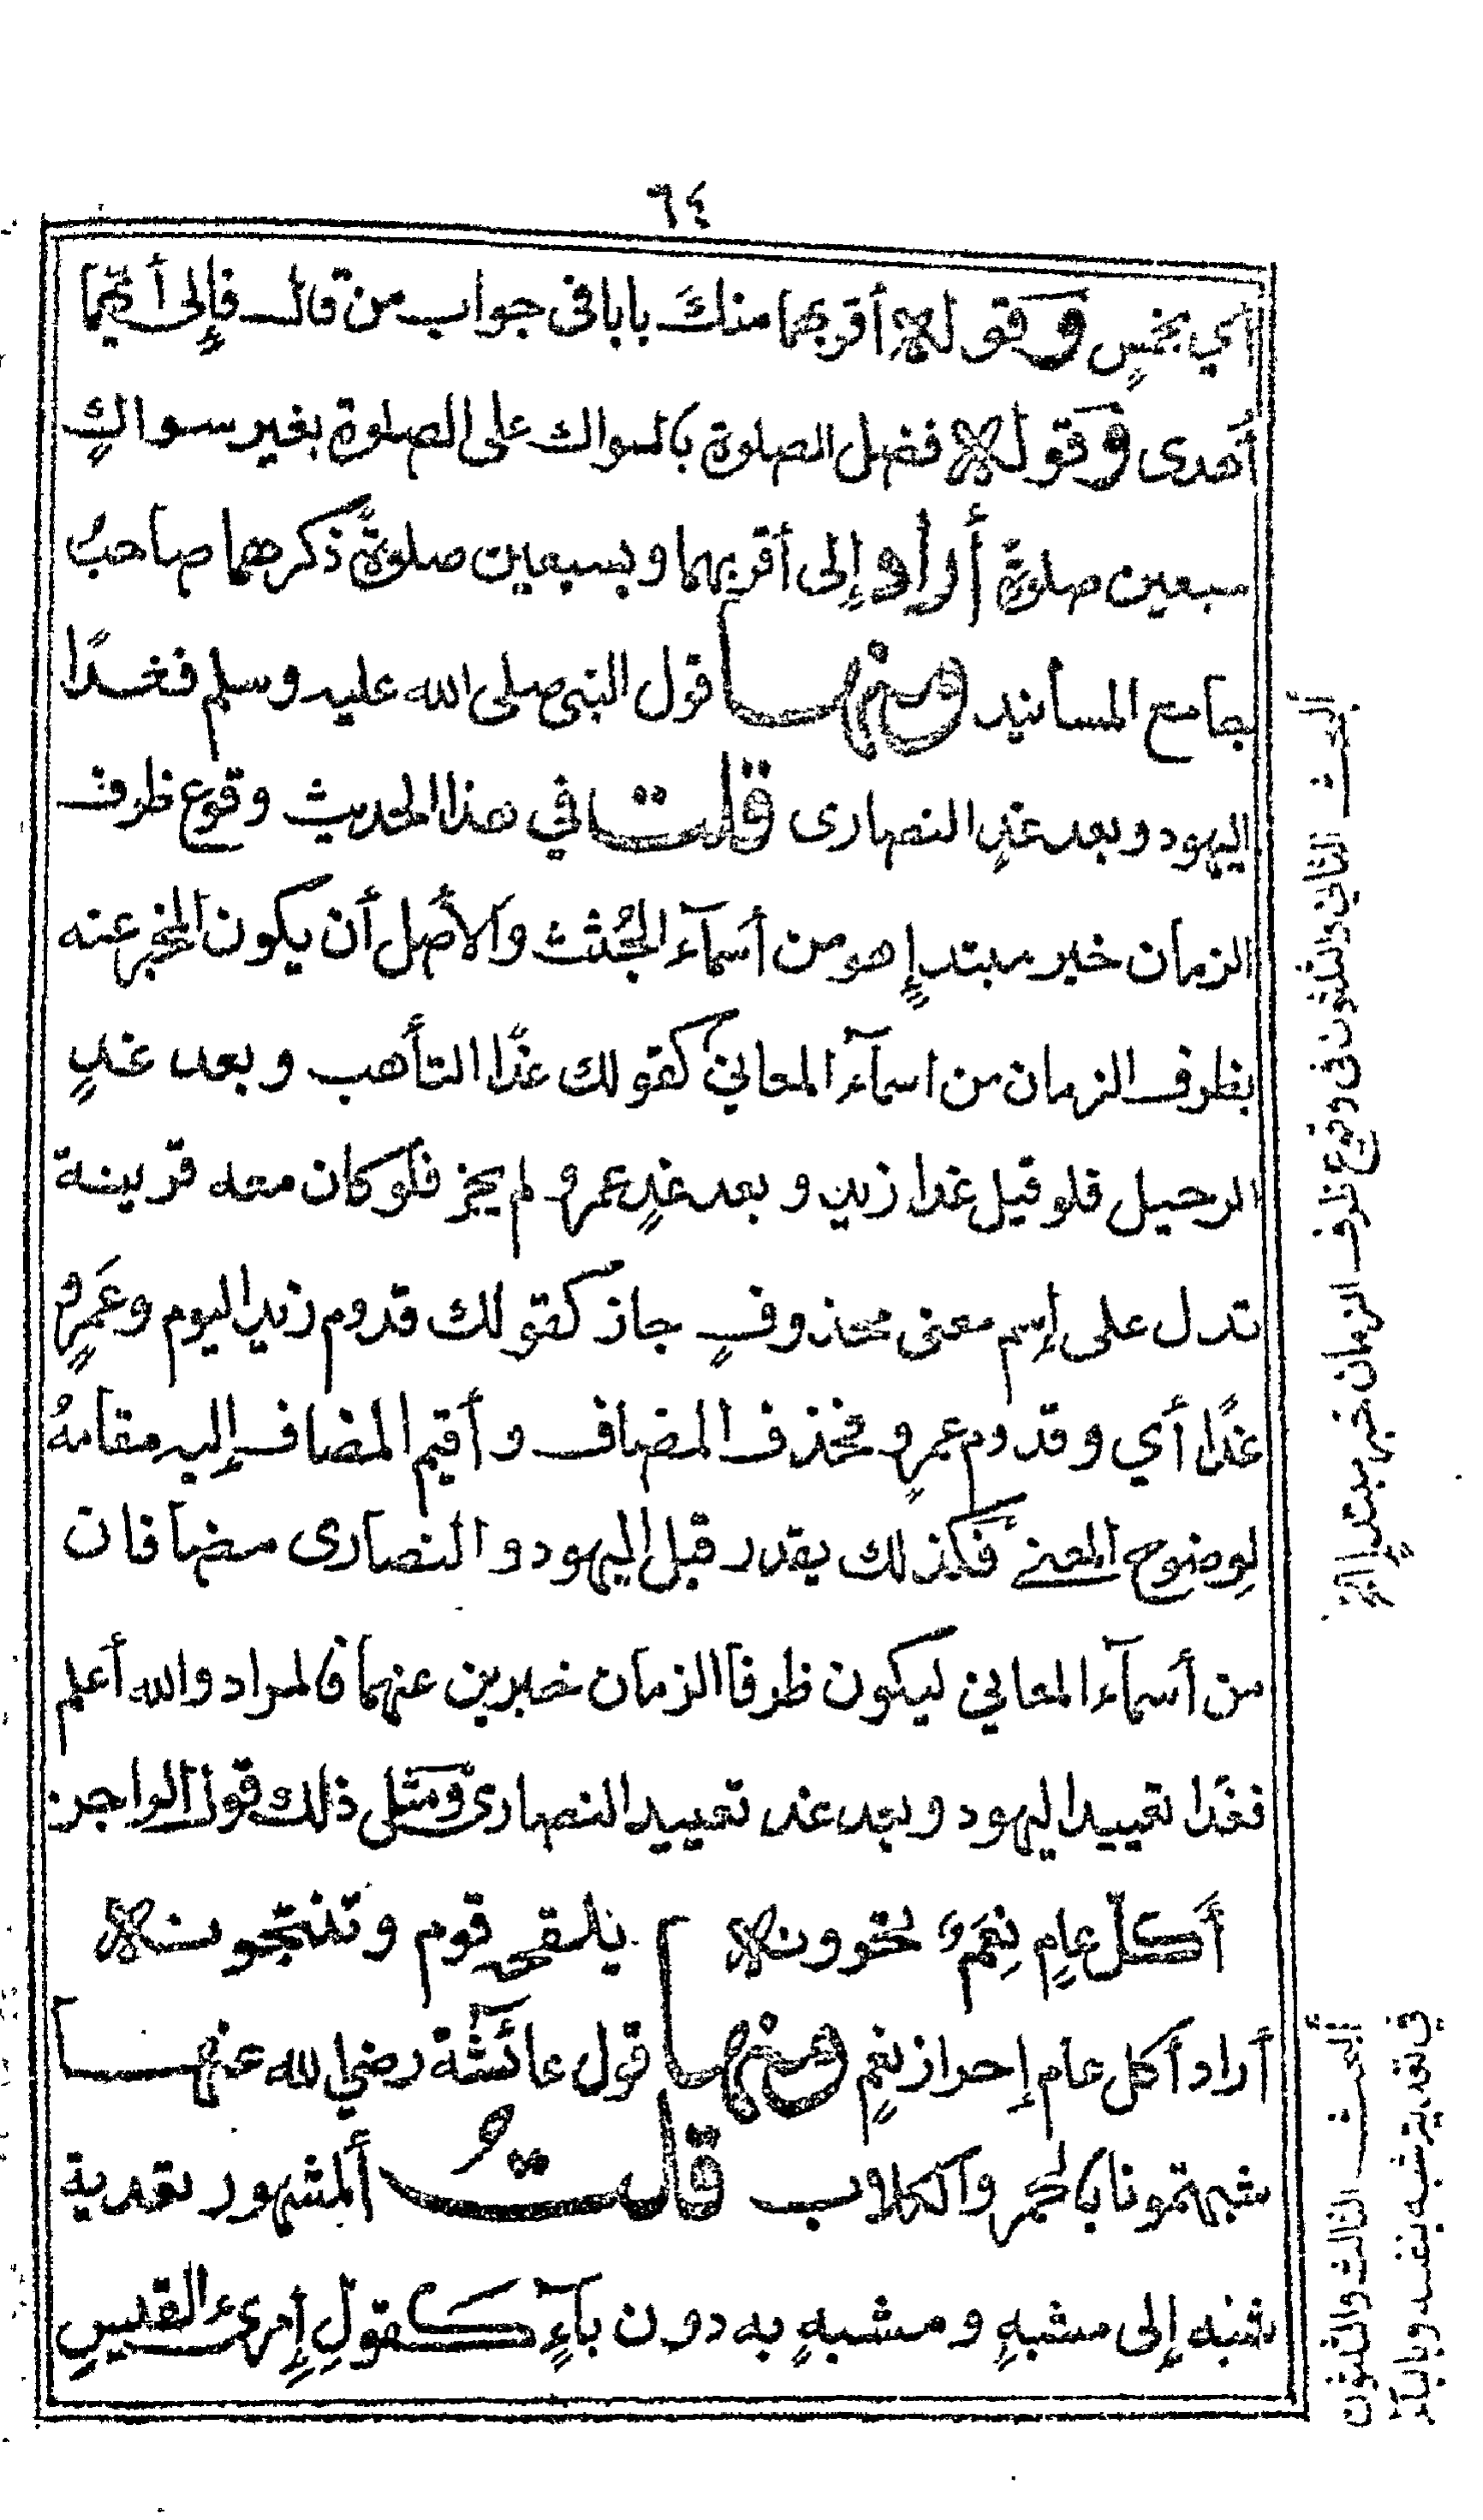 ٦٤
أي بخمسٍ وقوله أقربهما منك بابا في جواب من قال فإلى أيّهما
أهدى وقوله فضل الصلوة بالسواك على الصلوة بغير سواكٍ
سبعين صلوة أراد إلى أقربهما وبسبعين صلوةً ذكرهما صاحبُ
جامع المسانيد ومنها قول النبي صلى الله عليه وسلم فغدًا
اليهود وبعد غدٍ النصارى قلت في هذا الحديث وقوع ظرف
الزمان خبر مبتدإٍ هو من أسمآء الجُثث والأصل أن يكون المخبر عنه
بظرف الزمان من اسمآء المعاني كقولك غدًا التأهب وبعد غدٍ
الرحيل فلو قيل غدا زيد وبعد غدٍ عمرو لم يجز فلو كان معه قرينة
تدل على إسم معنى محذوفٍ جاز كقولك قدوم زيد اليوم وعَمرٍو
غدًا أي وقدوم عمرٍو فحذف المضاف وأقيم المضاف إليه مقامهُ
لوضوح المعنى فكذلك يقدر قبل اليهود والنصارى مضافان
من أسمآء المعاني ليكون ظرفا الزمان خبرين عنهما فالمراد والله أعلم
فغدًا تعييد اليهود وبعد غد تعييد النصارى ومثل ذلك قول الراجز
أكلّ عامٍ نِعَمٌ تحوونه يلقحه قوم وتنتجونه
أراد أكل عام إحراز نعمٍ ومنها قول عائشة رضي الله عنها
شبهتمونا بالحمر والكلاب قلتُ ألمشهور تعدية
شبه إلى مشبهٍ ومشبهٍ به دون بآءٍ كقولِ إمرئ القيسِ
ألبحث الثاني والثلثون في وقوع ظرف الزمان خبر مبتدإٍ
ألبحث الثالث والثلثون
في تعدية شبه بنفسه وبالبآء